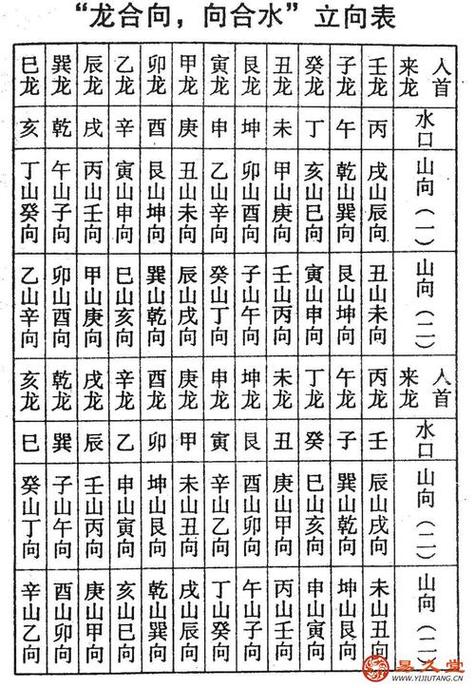 “龙合向，向合水”立向表
人首来龙 水口 山向（一） 山向（二）
壬龙 丙 戌山辰向 丑山未向
子龙 午 乾山巽向 艮山坤向
癸龙 丁 亥山巳向 寅山申向
丑龙 未 甲山庚向 壬山丙向
艮龙 坤 卯山酉向 子山午向
寅龙 申 乙山辛向 癸山丁向
甲龙 庚 丑山未向 辰山戌向
卯龙 酉 艮山坤向 巽山乾向
乙龙 辛 寅山申向 巳山亥向
辰龙 戌 丙山壬向 甲山庚向
巽龙 乾 午山子向 卯山酉向
巳龙 亥 丁山癸向 乙山辛向
人首来龙 水口 山向（二） 山向（二）
丙龙 壬 辰山戌向 未山丑向
午龙 子 巽山乾向 坤山艮向
丁龙 癸 巳山亥向 申山寅向
未龙 丑 庚山甲向 丙山壬向
坤龙 艮 酉山卯向 午山子向
申龙 寅 辛山乙向 丁山癸向
庚龙 甲 未山丑向 戌山辰向
酉龙 卯 坤山艮向 乾山巽向
辛龙 乙 申山寅向 亥山巳向
戌龙 辰 壬山丙向 庚山甲向
乾龙 巽 子山午向 酉山卯向
亥龙 巳 癸山丁向 辛山乙向
易久堂
WWW.YIJIUTANG.CN